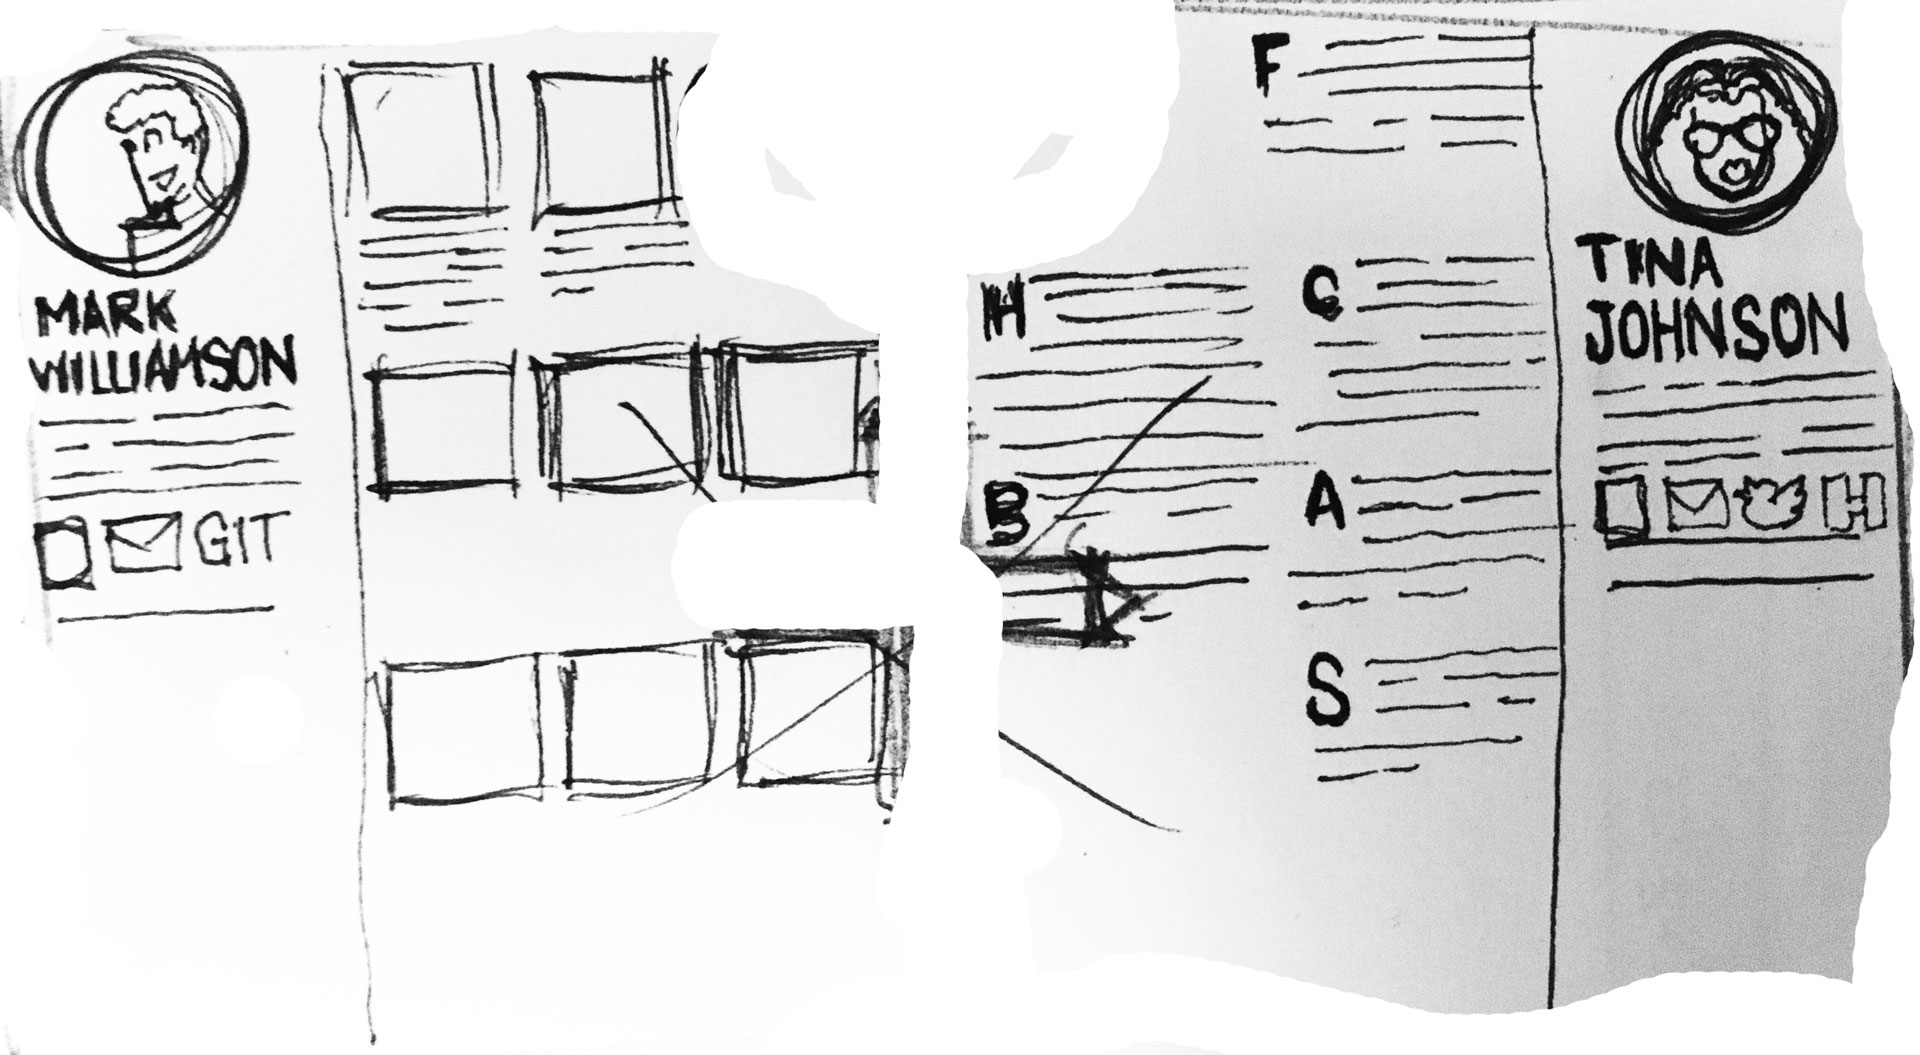 MARK
WILLIAMSON
GIT
F
H
C
B
A
S
TINA
JOHNSON
H